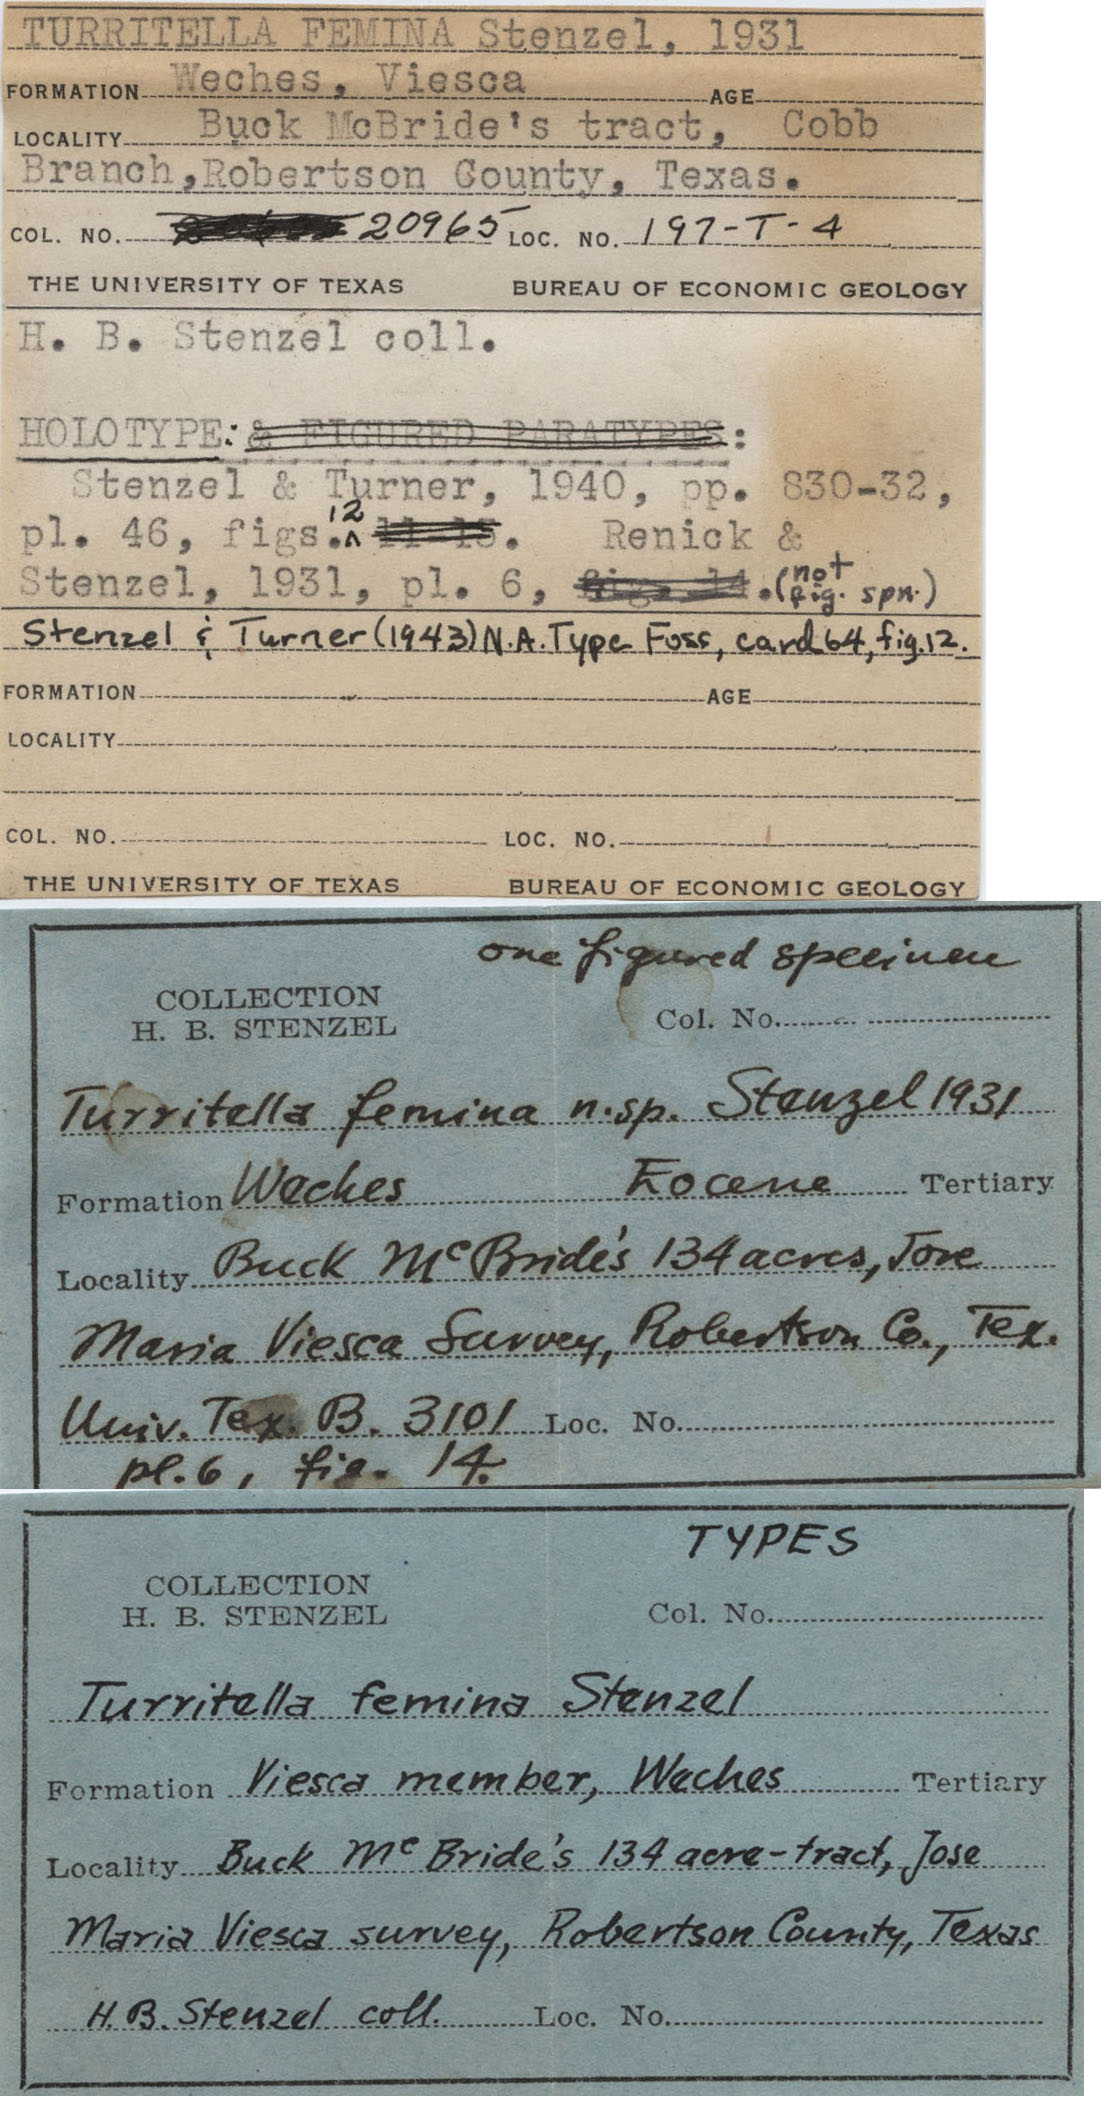 TURRITELLA FEMINA Stenzel, 1931
FORMATION Weches, Viesca AGE
LOCALITY Buck McBride's tract, Cobb
Branch, Robertson County, Texas.
COL. NO. 20965 LOC. NO. 197-T-4
THE UNIVERSITY OF TEXAS BUREAU OF ECONOMIC GEOLOGY
H. B. Stenzel coll.
HOLOTYPE: & FIGURED PARATYPES:
Stenzel & Turner, 1940, pp. 830-32,
pl. 46, figs. 12 11-15. Renick &
Stenzel, 1931, pl. 6, fig. 14. (not fig. spn.)
Stenzel & Turner (1943) N.A. Type Foss, card 64, fig. 12.
FORMATION AGE
LOCALITY
COL. NO. LOC. NO.
THE UNIVERSITY OF TEXAS BUREAU OF ECONOMIC GEOLOGY
one figured specimen
COLLECTION
H. B. STENZEL Col. No.
Turritella femina n.sp. Stenzel 1931
Formation Weches Eocene Tertiary
Locality Buck McBride's 134 acres, Jose
Maria Viesca Survey, Robertson Co., Tex.
Univ. Tex. B. 3101 Loc. No.
pl. 6, fig. 14.
TYPES
COLLECTION
H. B. STENZEL Col. No.
Turritella femina Stenzel
Formation Viesca member, Weches Tertiary
Locality Buck McBride's 134 acre-tract, Jose
Maria Viesca survey, Robertson County, Texas
H.B. Stenzel coll. Loc. No.